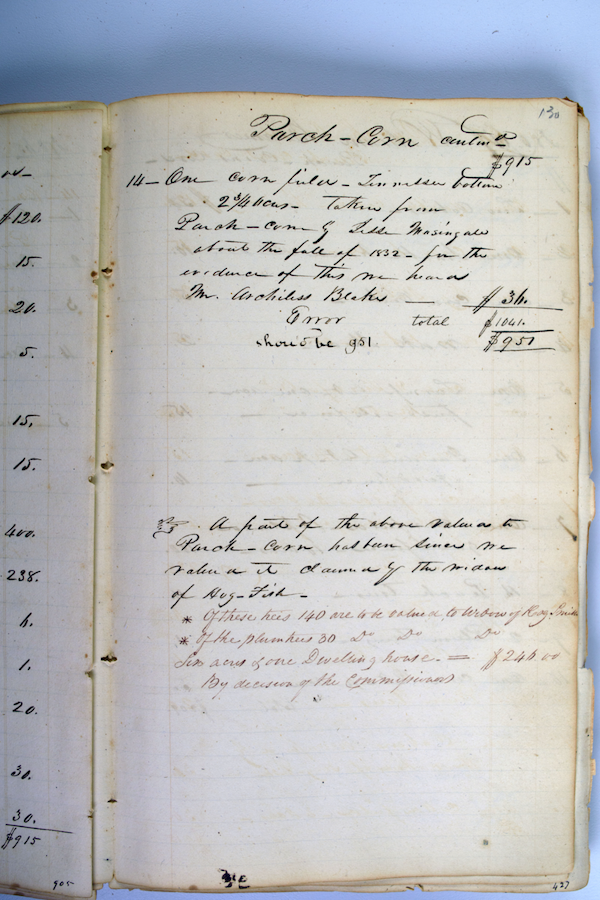 130
Parch-Corn contind
$915
14 - One corn field - Tennessee bottom
2 3/4 acres - taken from
Parch-corn by Jesse Masingale
about the fall of 1832 - for the
evidence of this we heard
Mr. Archiless Blake — $ 36.
Error total $1041.
should be 951 $951
A part of the above valued to
Parch-Corn has been since we
valued it claimed by the widow
of Hog-Fish -
* Of these trees 140 are to be valued to Widow of
* Of the plumtrees 30 Do Do Do
Six acres & one Dwelling house. = $246.00
By decision of the Commissioners
427
$120.
15.
20.
5.
15.
15.
400.
238.
6.
1.
20.
30.
30.
$915
905